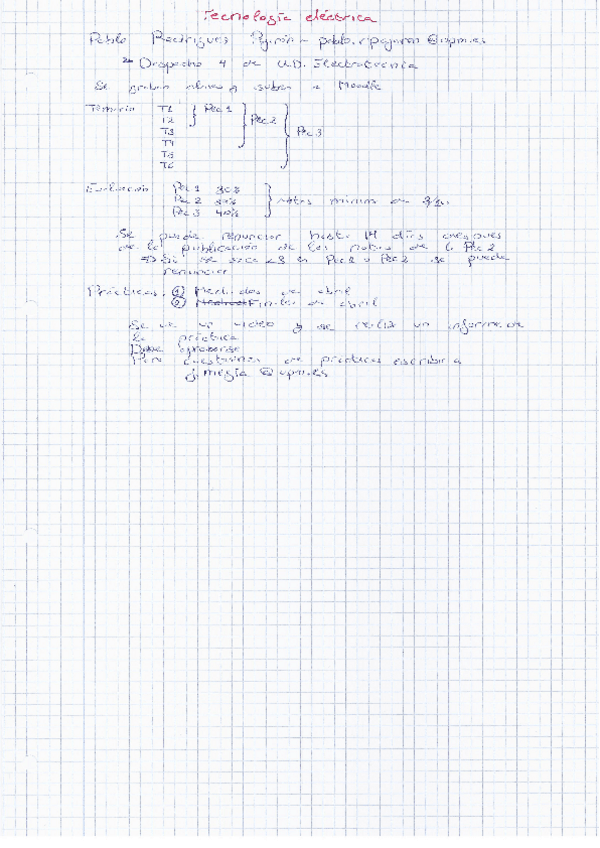 Tecnología eléctrica
Pablo Rodríguez
Despacho 4 de U.D. Electrotecnia
Se graban y suben a Moodle
Temario T1 } Pec 1
T2 } Pec 2
T3 } Pec 3
T4
T5
T6
Evaluación Pec 1 30%
Pec 2 30% } Notas mínima de 3/10
Pec 3 40%
Se puede renunciar hasta 14 días después
de la publicación de las notas de la Pec 2
=> Si se saca <3 en Pec 1 o Pec 2 se puede
renunciar
Prácticas. ① Mediados de abril
② Finales de abril
Se ve un video y se realiza un informe de
la práctica
Para cuestiones de prácticas escribir a
@upm.es